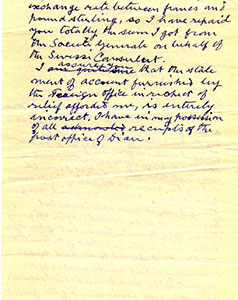 exchange rate between francs and
pound sterling, so I have repaid
you totally the sum I got from
the Société Generale on behalf of
the Swiss Consulent.
I assure you that the state
ment of account furnished by
the Foreign Office in respect of
relief afforded me, is entirely
incorrect, I have in my possession
of all receipts of the
post office of Dinan.